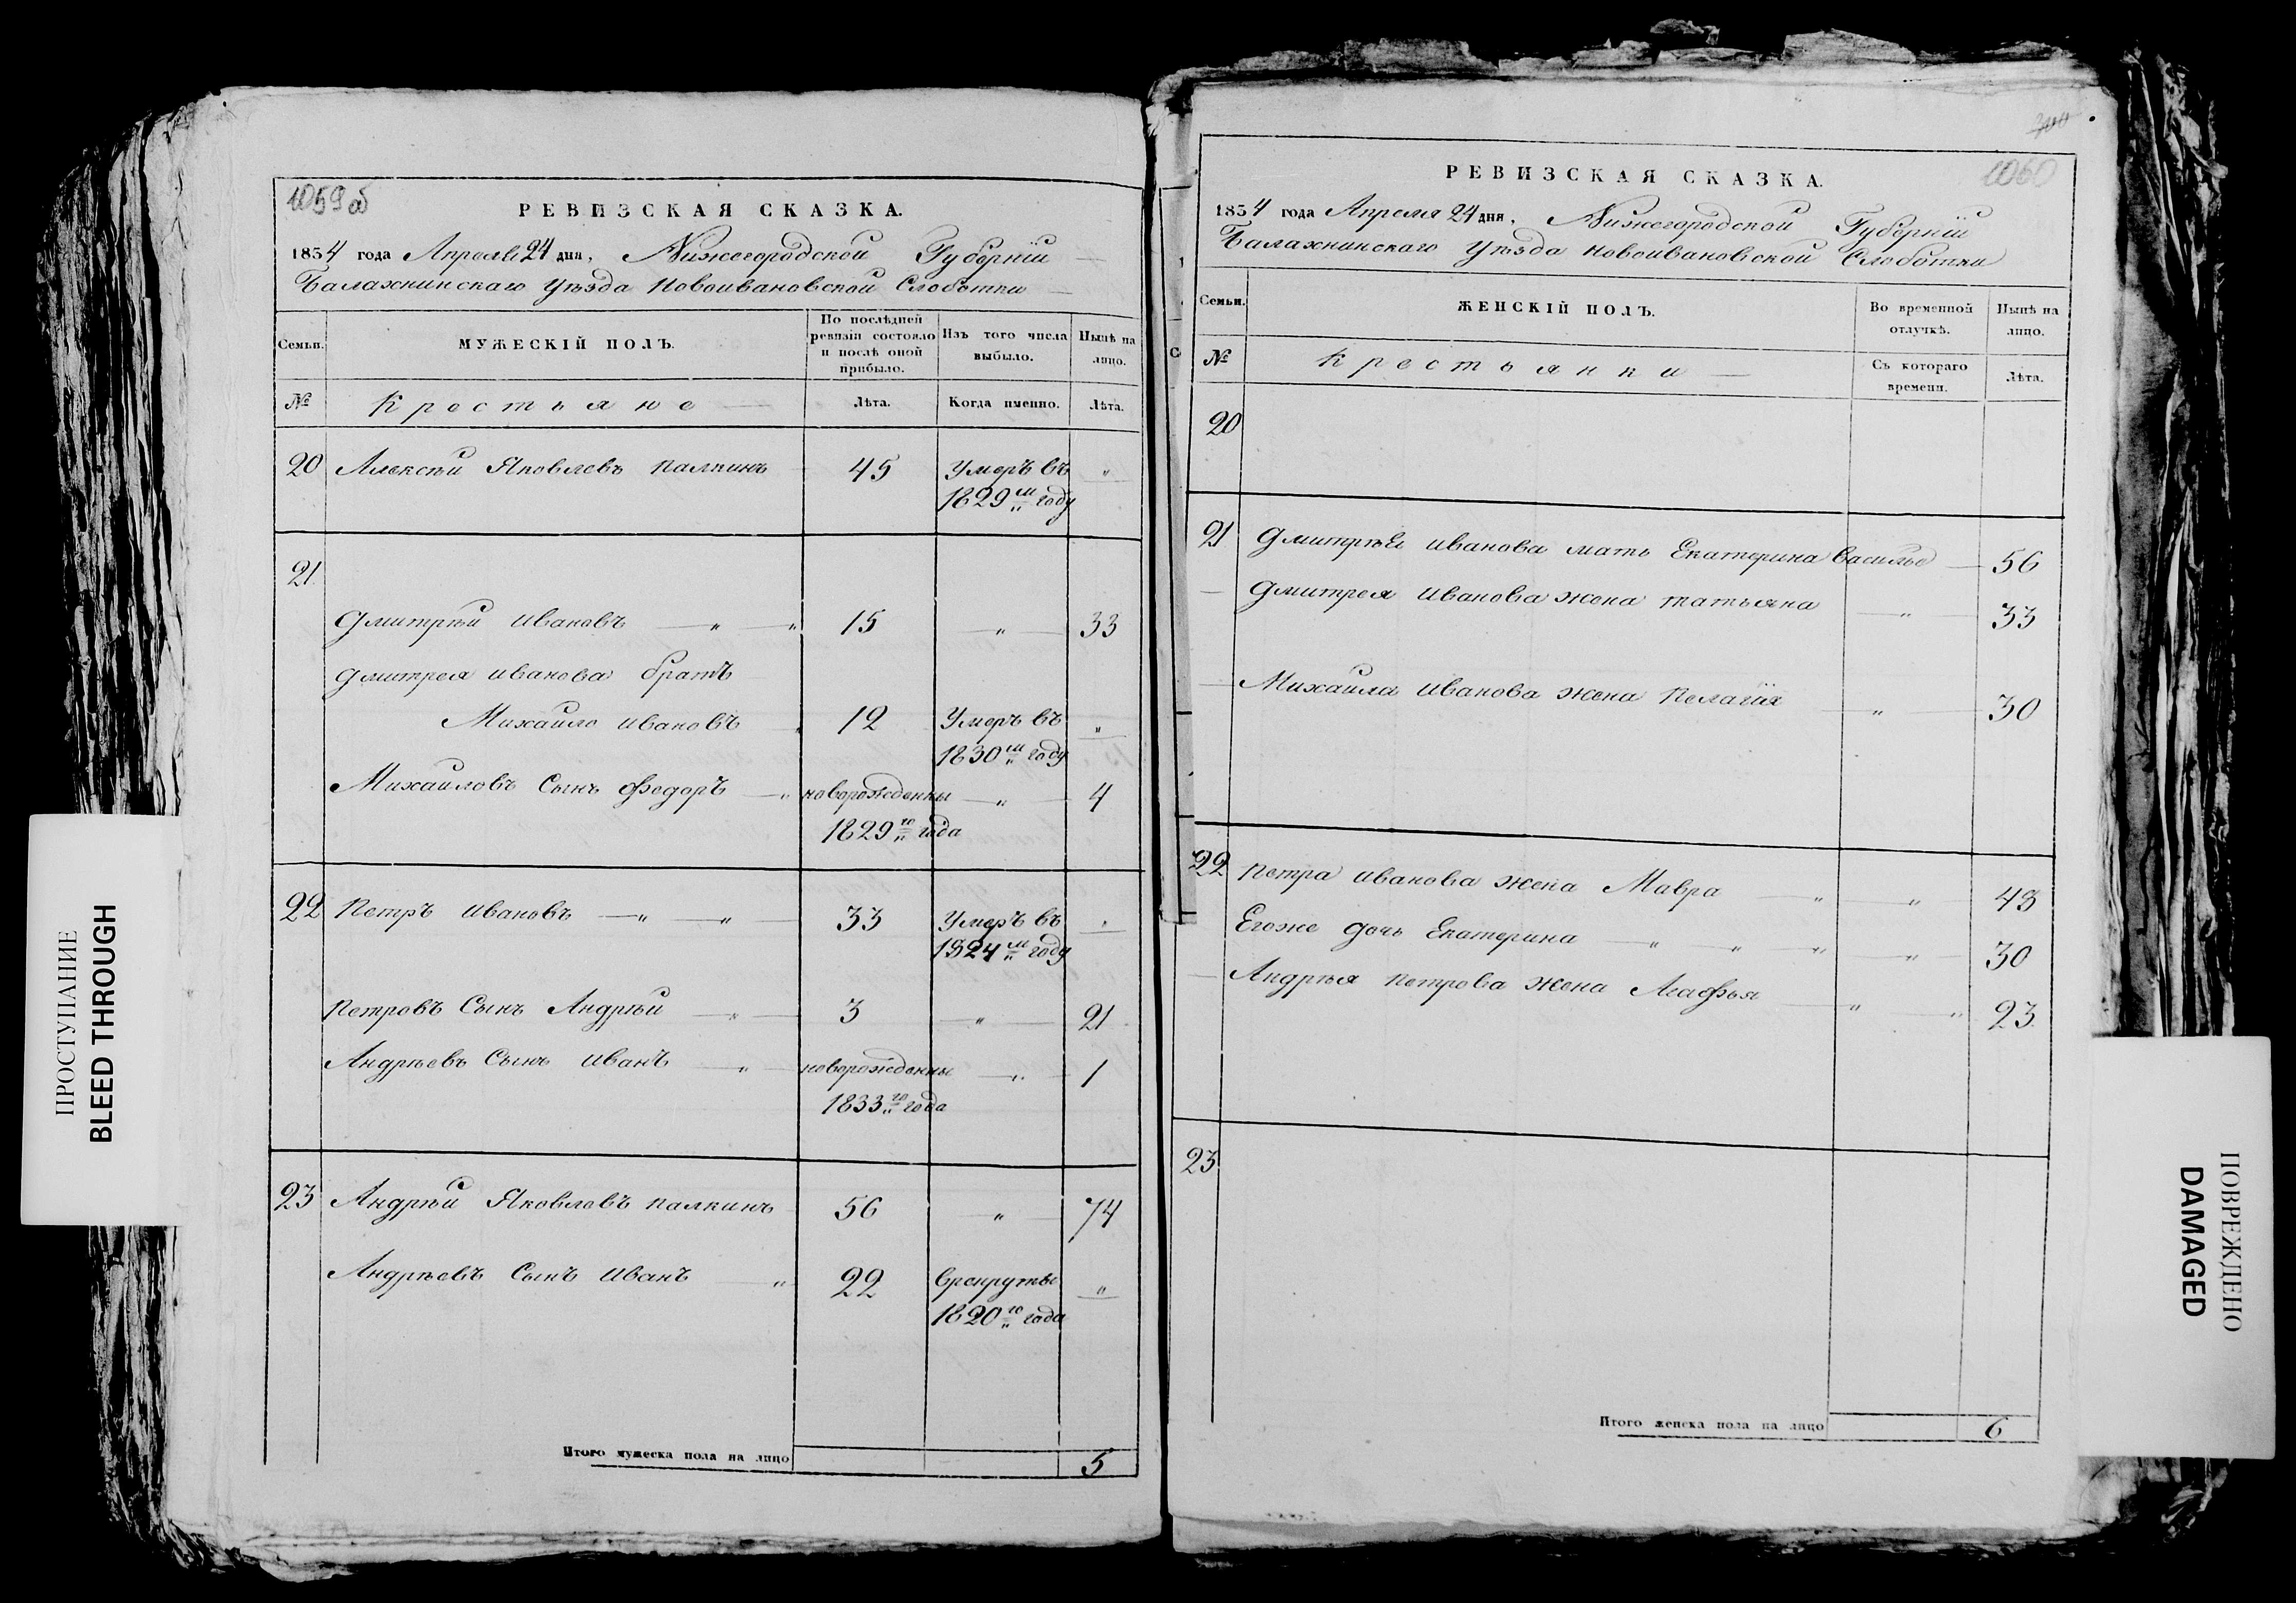 1059об
РЕВИЗСКАЯ СКАЗКА.
1834 года Апреля 24 дня, Нижегородской Губерніи
Балахнинскаго Уѣзда Новоивановской Слоботки
Семьи.
МУЖЕСКІЙ ПОЛЪ.
По послѣдней ревизіи состояло и послѣ оной прибыло.
Изъ того числа выбыло.
Нынѣ на лицо.
№
Крестьяне
Лѣта.
Когда именно.
Лѣта.
20 Алексѣй Яковлевъ Палкинъ 45 Умеръ въ "
1829м году
21
Дмитрѣй Ивановъ " " 15 " 33
Дмитрея Иванова братъ
Михайло Ивановъ 12 Умеръ въ "
1830м году
Михайловъ Сынъ Федоръ " новорожденны " 4
1829го года
22 Петръ Ивановъ " " 33 Умеръ въ "
1824м году
Петровъ Сынъ Андрѣй " 3 " 21
Андрѣевъ Сынъ Иванъ " новорожденны " 1
1833го года
23 Андрѣй Яковлевъ Палкинъ 56 " 74
Андрѣевъ Сынъ Иванъ " 22 Врекруты "
1820го года
Итого мужеска пола на лицо 5
300
1060
РЕВИЗСКАЯ СКАЗКА.
1834 года Апреля 24 дня, Нижегородской Губерніи
Балахнинскаго Уѣзда Новоивановской Слоботки
Семьи.
ЖЕНСКІЙ ПОЛЪ.
Во временной отлучкѣ.
Нынѣ на лицо.
№
Крестьянки
Съ котораго времени.
Лѣта.
20
21 Дмитрѣя Иванова мать Екатерина Василье 56
Дмитрея Иванова жена Татьяна " 33
Михайла Иванова жена Пелагія " 30
22 Петра Иванова жена Мавра " " 48
Егоже дочь Екатерина " " " " 30
Андрѣя Петрова жена Агафья " " 23
23
Итого женска пола на лицо 6
ПРОСТУПАНИЕ
BLEED THROUGH
ПОВРЕЖДЕНО
DAMAGED